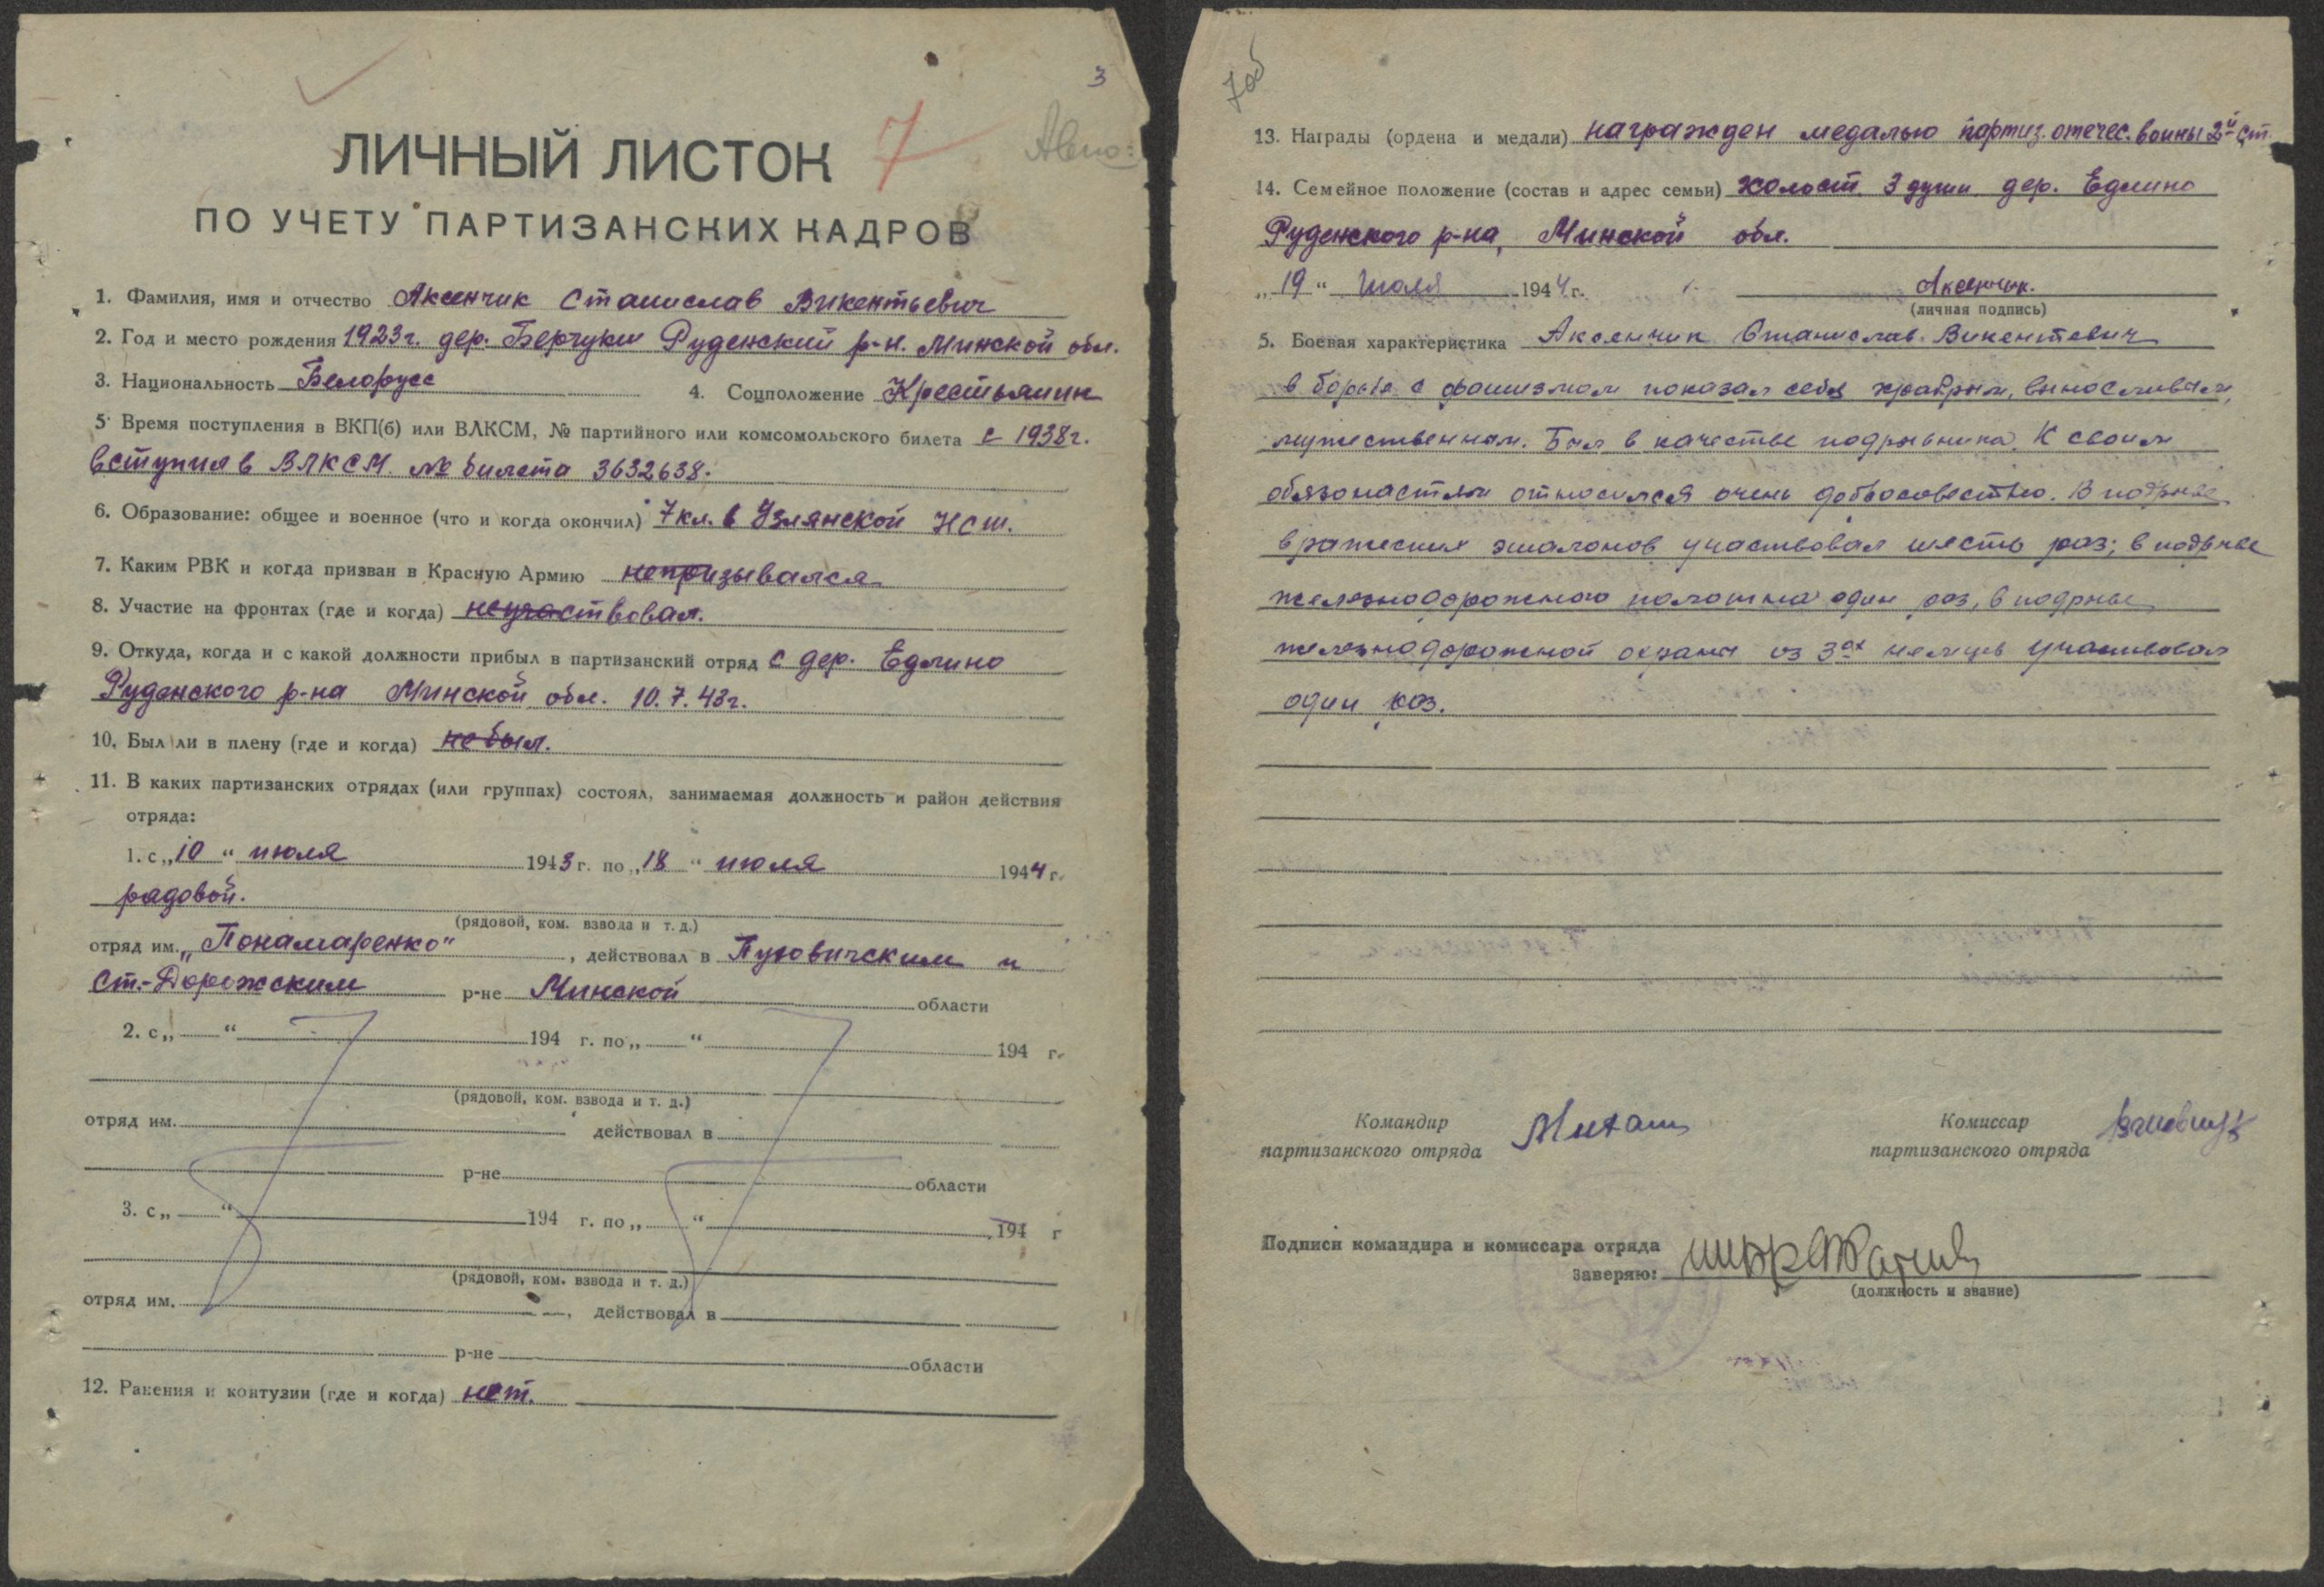 3
7
ЛИЧНЫЙ ЛИСТОК
ПО УЧЕТУ ПАРТИЗАНСКИХ КАДРОВ
1. Фамилия, имя и отчество Аксенчик Станислав Викентьевич
2. Год и место рождения 1923г. дер. Берчуки Руденский р-н. Минской обл.
3. Национальность Белорусс 4. Соцположение Крестьянин
5. Время поступления в ВКП(б) или ВЛКСМ, № партийного или комсомольского билета с 1938г.
вступил в ВЛКСМ. № билета 3632638.
6. Образование: общее и военное (что и когда окончил) 7 кл. в Узлянской НСШ.
7. Каким РВК и когда призван в Красную Армию непризывался
8. Участие на фронтах (где и когда) неучаствовал.
9. Откуда, когда и с какой должности прибыл в партизанский отряд с дер. Едлино
Руденского р-на Минской обл. 10.7.43г.
10. Был ли в плену (где и когда) не был.
11. В каких партизанских отрядах (или группах) состоял, занимаемая должность и район действия
отряда:
1. с „10“ июля 1943 г. по „18“ июля 1944 г.
радовой.
(рядовой, ком. взвода и т. д.)
отряд им. „Понамаренко“, действовал в Пуховичским и
Ст.-Дорожским р-не Минской области
2. с „ “ 194 г. по „ “ 194 г.
(рядовой, ком. взвода и т. д.)
отряд им. действовал в
р-не области
3. с „ “ 194 г. по „ “ 194 г
(рядовой, ком. взвода и т. д.)
отряд им. , действовал в
р-не области
12. Ранения и контузии (где и когда) нет.
7об
13. Награды (ордена и медали) награжден медалью партиз. отечес. воины 2й ст.
14. Семейное положение (состав и адрес семьи) холост. 3 души дер. Едлино
Руденского р-на, Минской обл.
„19“ июля 1944 г. Аксенчик.
(личная подпись)
5. Боевая характеристика Аксенчик Станислав Викентевич
в борьбе с фашизмом показал себя храбрым, выносливым,
мужественным. Был в качестве подрывника. К своим
обязоностям относился очень добросовестно. В подрыве
вражеских эшалонов участвовал шесть раз; в подрыве
железнодорожного полотна один раз, в подрыве
железнодорожной охраны из 3ох немцев участвовал
один раз.
Командир Комиссар
партизанского отряда партизанского отряда
Подписи командира и комиссара отряда
заверяю:
(должность и звание)